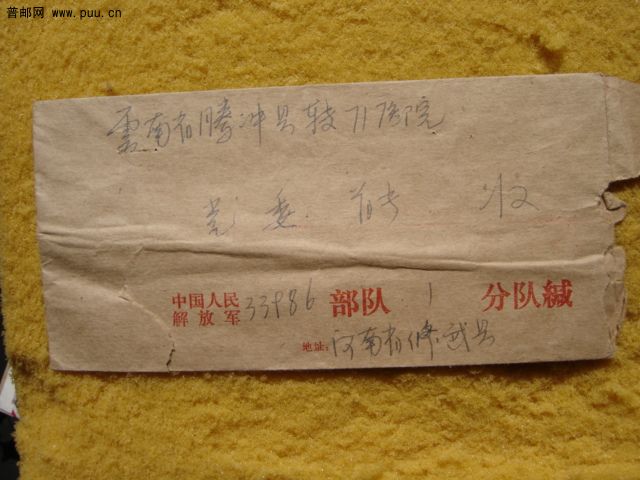 普邮网 www.puu.cn
雲南省腾冲县转71医院
党委 收
中国人民解放军 33986 部队 1 分队缄
地址: 河南省修武县